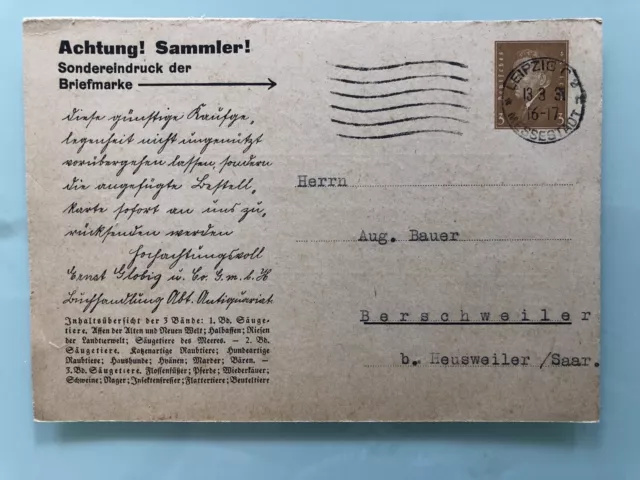 Achtung! Sammler!
Sondereindruck der
Briefmarke
diese günstige Kaufge-
legenheit nicht ungenützt
vorübergehen lassen, sondern
die angefügte Bestell-
karte sofort an uns zu-
rücksenden werden
Hochachtungsvoll
Ernst Globig u. Co. G.m.b.H
Buchhandlung Abt. Antiquariat
Inhaltsübersicht der 3 Bände: 1. Bd. Säuge-
tiere. Affen der Alten und Neuen Welt; Halbaffen; Riesen
der Landtierwelt; Säugetiere des Meeres. — 2. Bd.
Säugetiere. Katzenartige Raubtiere; Hundeartige
Raubtiere; Haushunde; Hyänen; Marder; Bären. —
3. Bd. Säugetiere. Flossenfüßer; Pferde; Wiederkäuer;
Schweine; Nager; Insektenfresser; Flattertiere; Beuteltiere
LEIPZIG C 2
13 3 31
16-17
MESSESTADT
3
Herrn
Aug. Bauer
Berschweiler
b. Heusweiler /Saar.